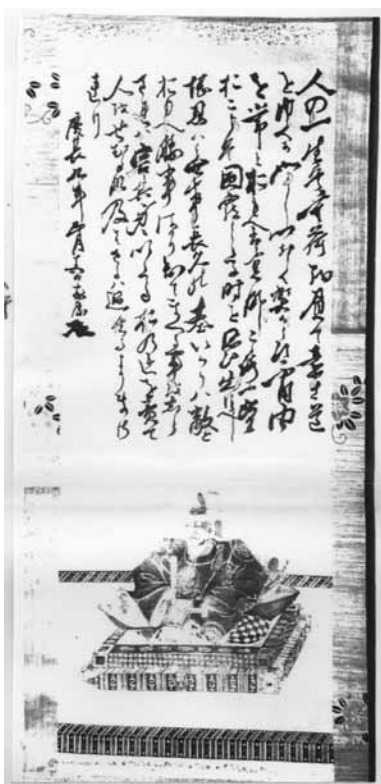 人の一生は重荷を負て遠き道
をゆくか如しいそくへからす不自由
を常とおもへは不足なし心に望
おこらは困窮したる時を思ひ出すへし
堪忍は無事長久の基いかりは敵と
おもへ勝事はかり知てまくる事をしら
されは害其身にいたるおのれを責て
人をせむるな及はさるは過たるよりまさ
れり
慶長九年 家康